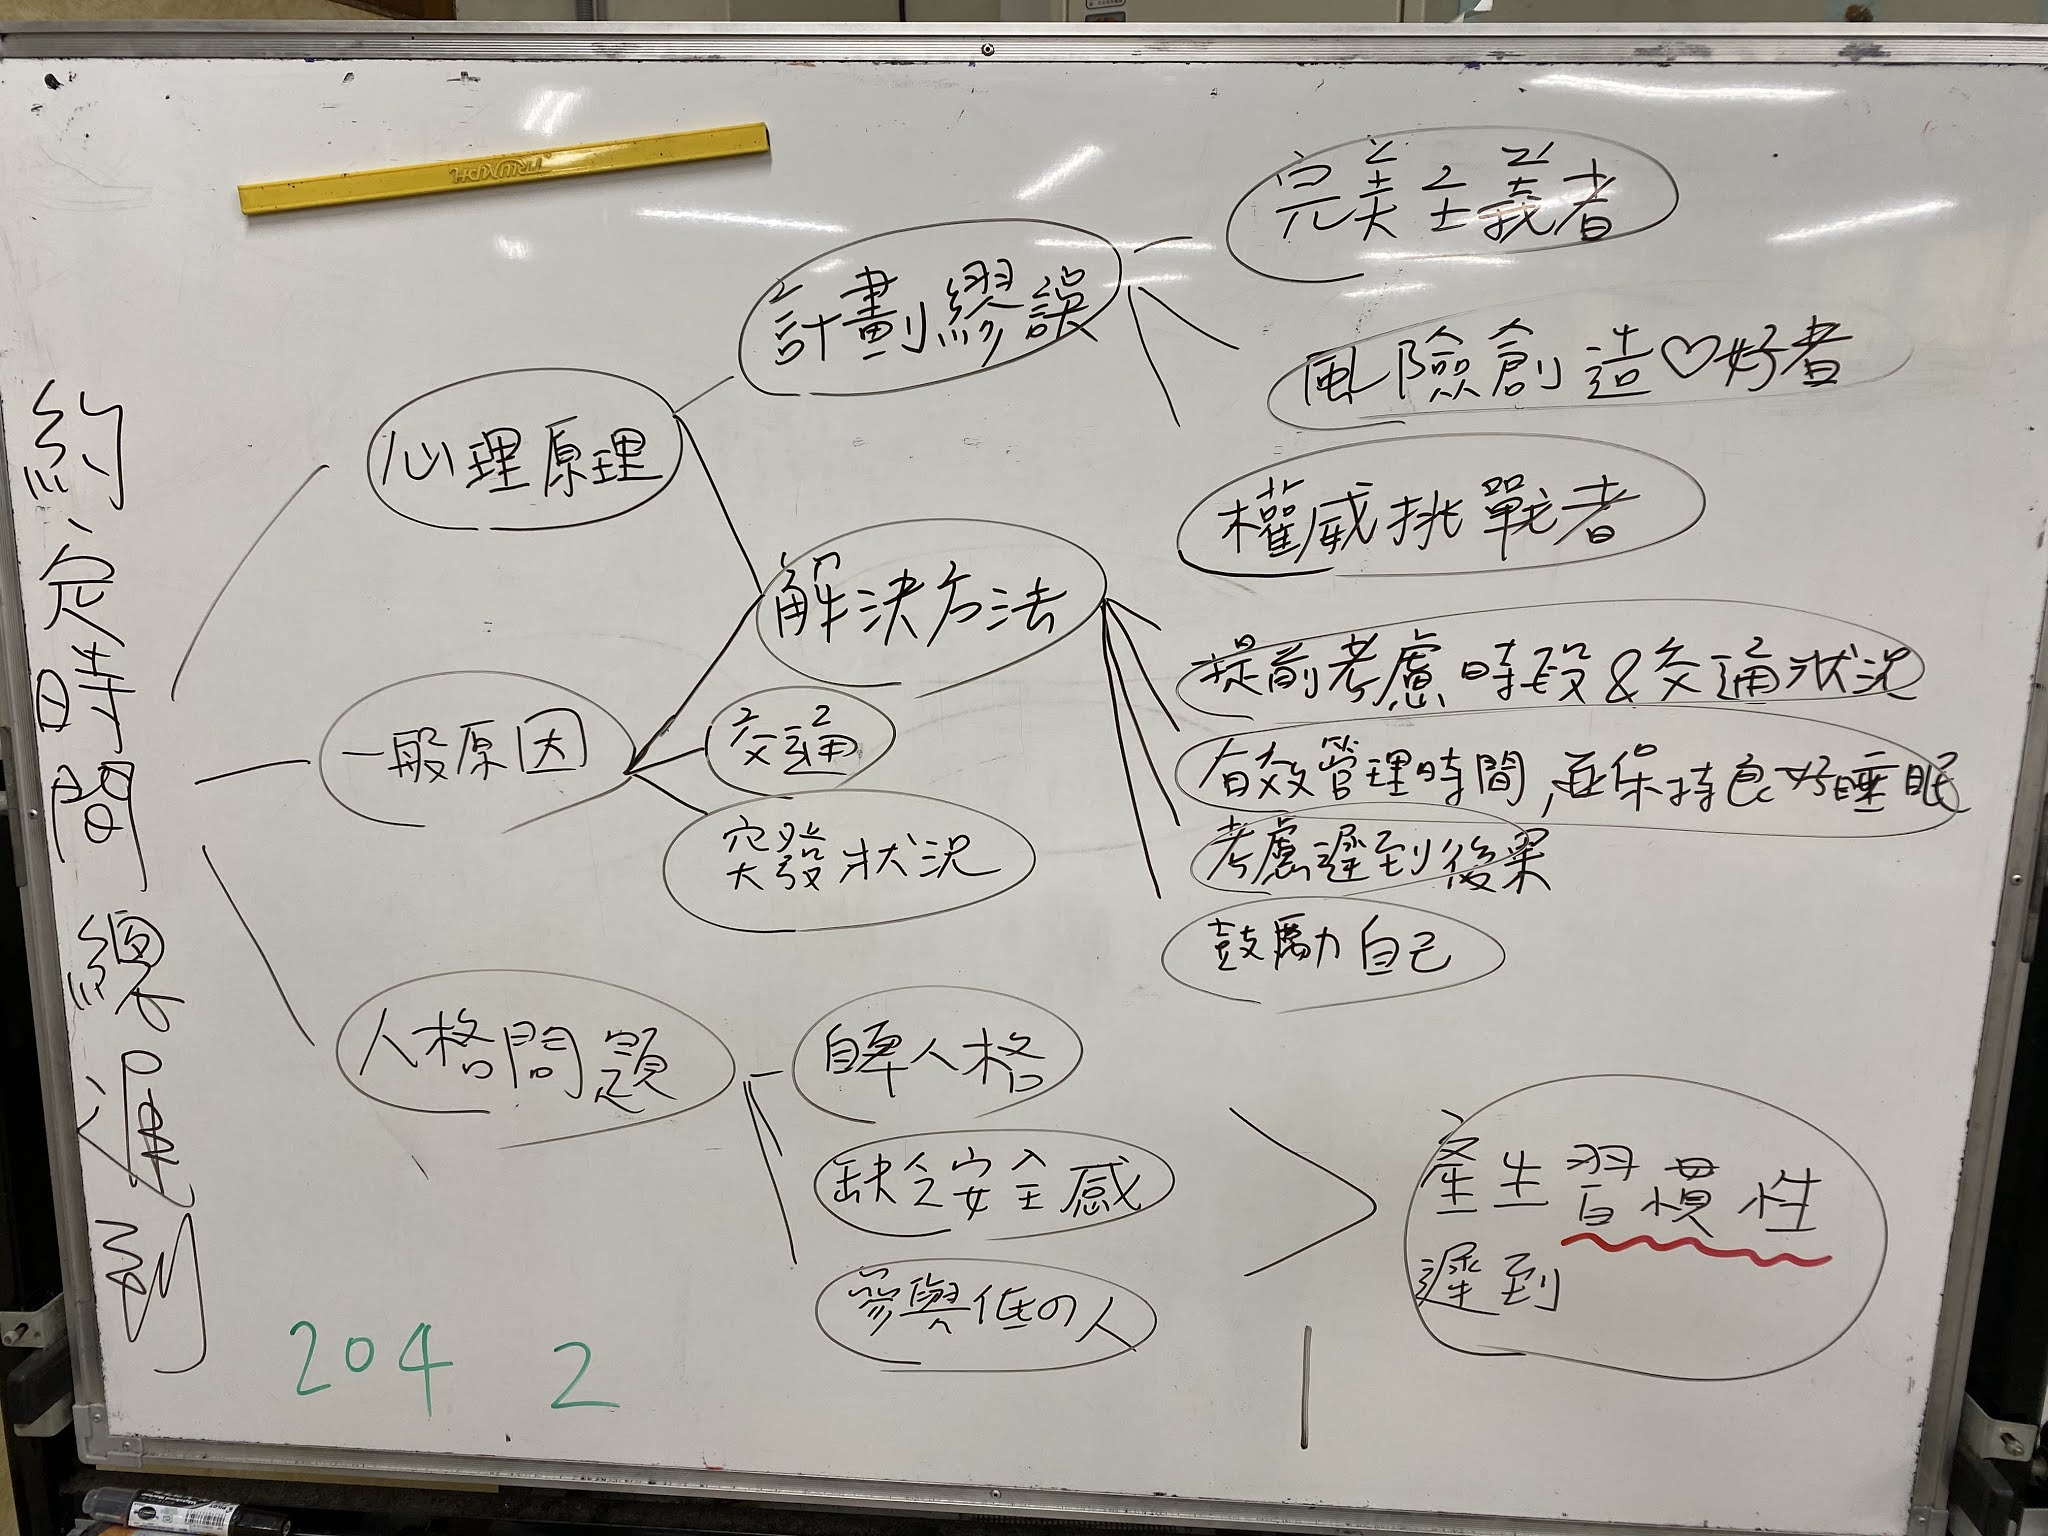 約定時間總遲到
心理原理
計劃繆誤
完美主義者
風險創造♡好者
權威挑戰者
解決方法
提前考慮時段&交通狀況
有效管理時間,並保持良好睡眠
考慮遲到後果
鼓勵自己
一般原因
交通
突發狀況
人格問題
自卑人格
缺乏安全感
參與低の人
產生習慣性
遲到
204 2
TRIUMPH